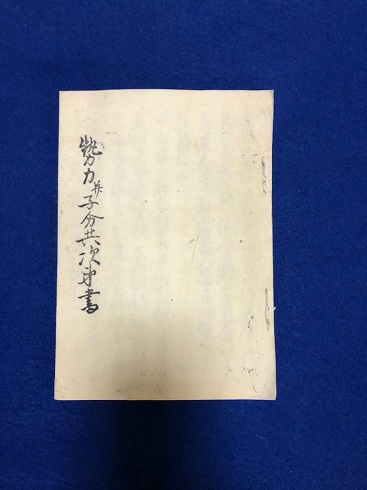 勢力并子分共次第書